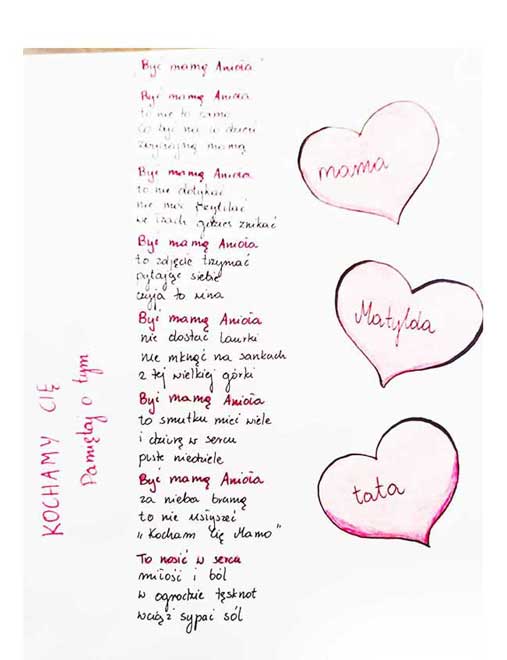 „Być mamą Anioła”
Być mamą Anioła
to nie to samo
co być na co dzień
zwyczajną mamą
Być mamą Anioła
to nie dotykać
nie móc przytulać
we łzach gdzieś znikać
Być mamą Anioła
to zdjęcie trzymać
pytając siebie
czyja to wina
Być mamą Anioła
nie dostać laurki
nie mknąć na sankach
z tej wielkiej górki
Być mamą Anioła
to smutku mieć wiele
i dziurę w sercu
puste niedziele
Być mamą Anioła
za nieba bramą
to nie usłyszeć
„Kocham Cię Mamo”
To nosić w sercu
miłość i ból
w ogrodzie tęsknot
wciąż sypać sól
KOCHAMY CIĘ
Pamiętaj o tym
mama
Matylda
tata